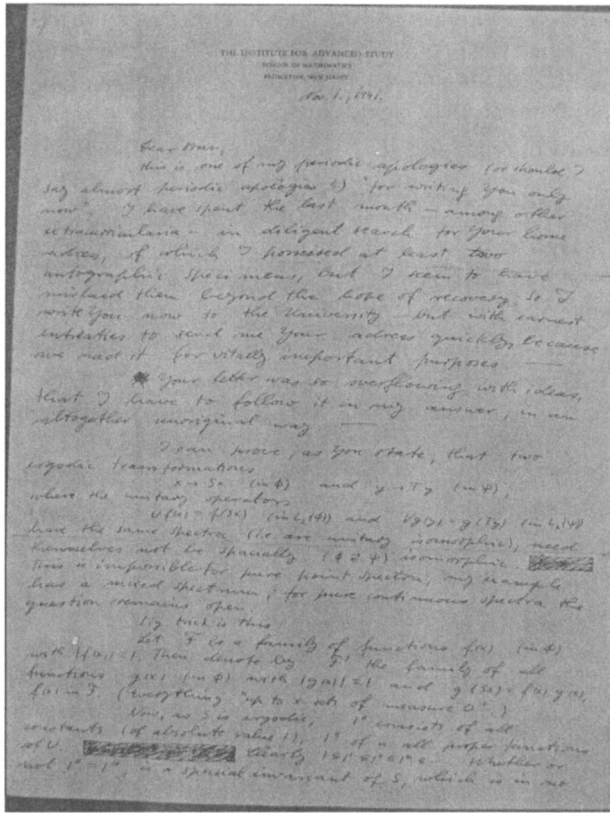 THE INSTITUTE FOR ADVANCED STUDY
SCHOOL OF MATHEMATICS
PRINCETON, NEW JERSEY
Nov. 1., 1941.
Dear
this is one of my periodic apologies (or should I
say almost periodic apologies ?) "for writing You only
now". I have spent the last month – among other
extracurricularia – in diligent search for Your home
adress, of which I possessed at least two
autographic specimens, but I seem to have
mislaid them beyond the hope of recovery. So I
write You now to the University – but with earnest
entreaties to send me Your adress quickly, because
we need it for vitally important purposes —
Your letter was so overflowing with ideas,
that I have to follow it in my answer, in an
altogether unoriginal way —
I can prove, as You state, that two
ergodic transformations
x → Sx (in Φ) and y → Ty (in Ψ),
where the unitary operators
(in L₂(Φ)) and Vg(y) = g(Ty) (in L₂(Ψ))
have the same spectra (i.e. are unitary isomorphic), need
themselves not be spacially (Φ ⇄ Ψ) isomorphic.
This is impossible for pure point spectra, my example
has a mixed spectrum; for pure continuous spectra the
question remains open.
My trick is this:
Let F is a family of functions f(x) (in Φ)
with |f(x)| = 1. Then denote by the family of all
functions g(x) (in Φ) with |g(x)| = 1 and g(Sx) = f(x) g(x),
f(x) in F. (Everything "up to x sets of measure 0".)
Now, as S is ergodic, 1' consists of all
constants (of absolute value 1), 1'' of all proper functions
of U. Clearly Whether or
not is a spacial invariant of S, which is in no